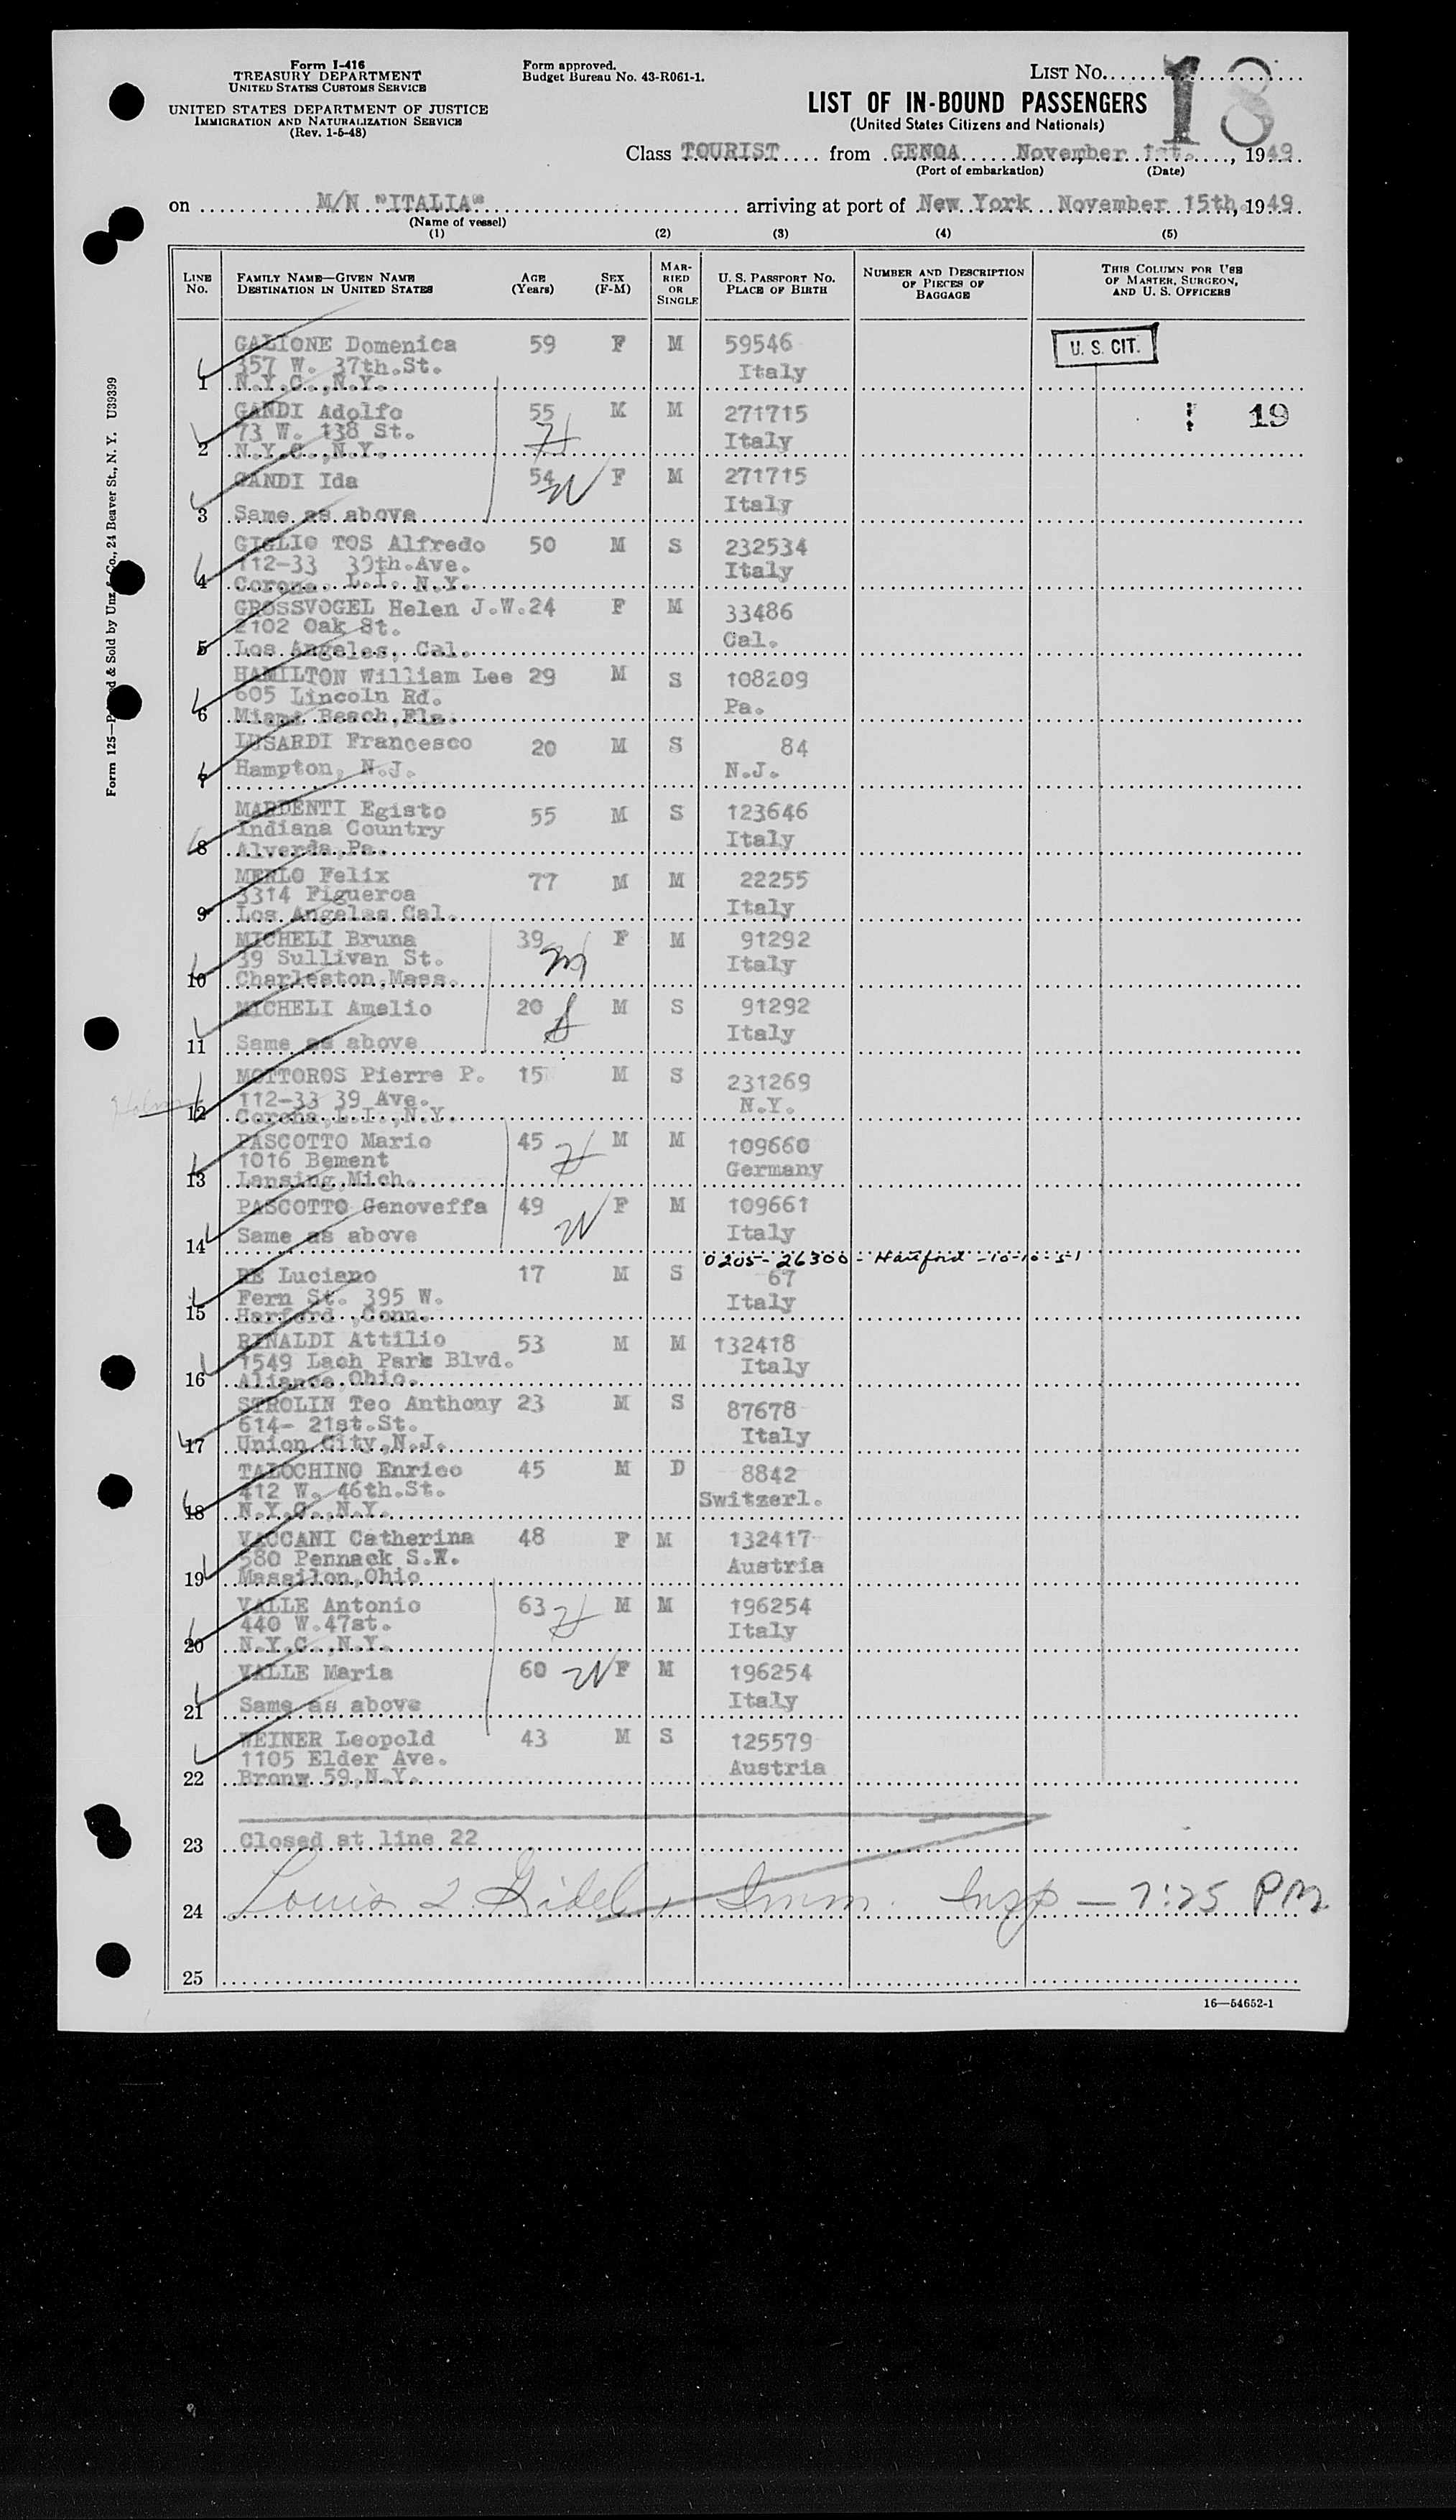 Form I-416
TREASURY DEPARTMENT
UNITED STATES CUSTOMS SERVICE
UNITED STATES DEPARTMENT OF JUSTICE
IMMIGRATION AND NATURALIZATION SERVICE
(Rev. 1-5-48)
Form approved.
Budget Bureau No. 43-R061-1.
LIST No. 18
LIST OF IN-BOUND PASSENGERS
(United States Citizens and Nationals)
Class TOURIST from GENOA November 1st., 1949
(Port of embarkation) (Date)
on M/N "ITALIA" arriving at port of New York November 15th, 1949
(Name of vessel)
(1) (2) (3) (4) (5)
LINE No. FAMILY NAME—GIVEN NAME DESTINATION IN UNITED STATES AGE (Years) SEX (F-M) MARRIED OR SINGLE U. S. PASSPORT No. PLACE OF BIRTH NUMBER AND DESCRIPTION OF PIECES OF BAGGAGE THIS COLUMN FOR USE OF MASTER, SURGEON, AND U. S. OFFICERS
GALIONE Domenica 59 F M 59546 U. S. CIT.
357 W. 37th.St. Italy
1 N.Y.C.,N.Y.
GANDI Adolfo 55 M M 271715 19
73 W. 138 St. H Italy
2 N.Y.C.,N.Y.
GANDI Ida 54 W F M 271715
Italy
3 Same as above
GIGLIO TOS Alfredo 50 M S 232534
112-33 39th.Ave. Italy
4 Corona. L.I. N.Y.
GROSSVOGEL Helen J.W. 24 F M 33486
2102 Oak St. Cal.
5 Los Angeles, Cal.
HAMILTON William Lee 29 M S 108209
605 Lincoln Rd. Pa.
6 Miami Beach,Fla.
LUSARDI Francesco 20 M S 84
7 Hampton, N.J. N.J.
MARDENTI Egisto 55 M S 123646
Indiana Country Italy
8 Alverda,Pa.
MERLO Felix 77 M M 22255
3314 Figueroa Italy
9 Los Angeles Cal.
MICHELI Bruna 39 M F M 91292
39 Sullivan St. Italy
10 Charleston,Mass.
MICHELI Amelio 20 M S 91292
Italy
11 Same as above
MOTTOROS Pierre P. 15 M S 231269
112-33 39 Ave. N.Y.
12 Corona,L.I.,N.Y.
PASCOTTO Mario 45 H M M 109660
1016 Bement Germany
13 Lansing,Mich.
PASCOTTO Genoveffa 49 W F M 109661
14 Same as above Italy
0205-26300-Hartford-10-10-51
RE Luciano 17 M S 67
Fern St. 395 W. Italy
15 Harford ,Conn.
RINALDI Attilio 53 M M 132418
1549 Lach Park Blvd. Italy
16 Aliance,Ohio.
STROLIN Teo Anthony 23 M S 87678
614- 21st.St. Italy
17 Union City,N.J.
TALOCHINO Enrico 45 M D 8842
412 W. 46th.St. Switzerl.
18 N.Y.C.,N.Y.
VACCANI Catherina 48 F M 132417
580 Pennack S.W. Austria
19 Massilon,Ohio
VALLE Antonio 63 H M M 196254
440 W.47st. Italy
20 N.Y.C.,N.Y.
VALLE Maria 60 W F M 196254
21 Same as above Italy
WEINER Leopold 43 M S 125579
1105 Elder Ave. Austria
22 Bronw 59,N.Y.
23 Closed at line 22
24 Louis Imm. Insp — 7:25 PM
25
16—54652-1
Form 125—Printed & Sold by Unz & Co., 24 Beaver St., N. Y. U39399